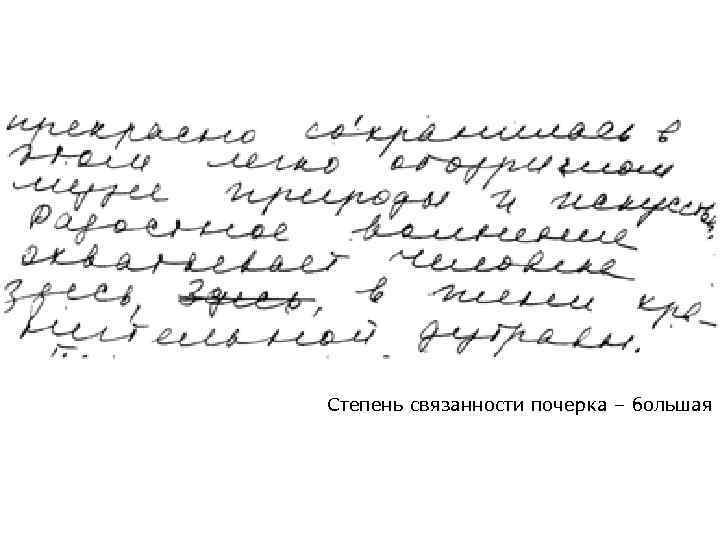 прекрасно сохранилась в
этом легко обозримом
музее природы и искусства.
Радостное волнение
охватывает человека
здесь, здесь, в тени
нительной дубравы.
Степень связанности почерка – большая